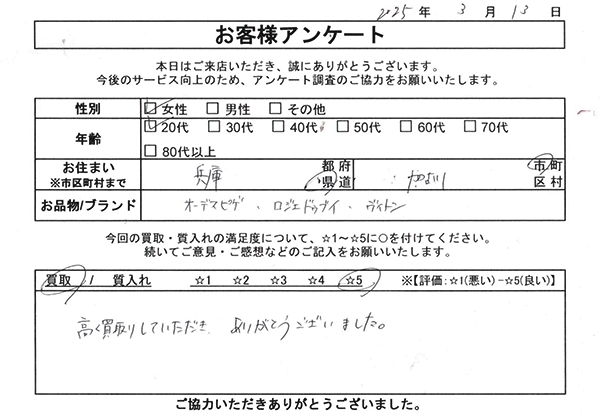 2025 年 3 月 13 日
お客様アンケート
本日はご来店いただき、誠にありがとうございます。
今後のサービス向上のため、アンケート調査のご協力をお願いいたします。
性別 ☑ 女性 □ 男性 □ その他
年齢 ☑ 20代 □ 30代 □ 40代 □ 50代 □ 60代 □ 70代
□ 80代以上
お住まい 兵庫 都府 市町
※市区町村まで 県道 区村
お品物/ブランド オーデマピゲ、ロジェドゥブイ、ヴィトン
今回の買取・質入れの満足度について、☆1～☆5に○を付けてください。
続いてご意見・ご感想などのご記入をお願いいたします。
買取 / 質入れ ☆1 ☆2 ☆3 ☆4 ☆5 ※【評価:☆1(悪い)-☆5(良い)】
高く買取りしていただき ありがとうございました。
ご協力いただきありがとうございました。